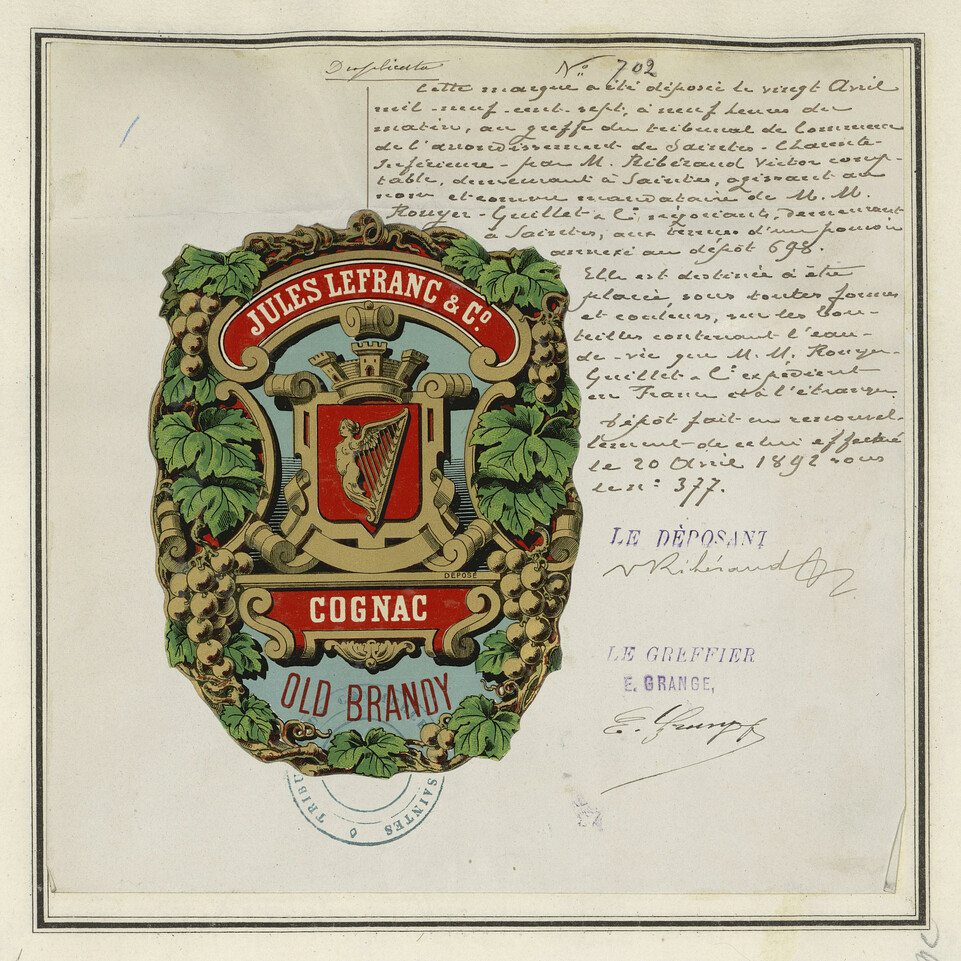 Duplicata
N° 702
Cette marque a été déposée le vingt Avril
mil-neuf-cent-sept, à neuf heures du
matin, au greffe du tribunal de Commerce
de l'arrondissement de Saintes-Charente-
Inférieure - par M. Ribéraud Victor comp-
table, demeurant à Saintes, agissant au
nom et comme mandataire de M. M.
Rouyer-Guillet & Cie négociants, demeurant
à Saintes, aux termes d'un pouvoir
annexé au dépôt 698.
Elle est destinée à être
placée, sous toutes formes
et couleurs, sur les bou-
teilles contenant l'eau-
de-vie que M. M. Rouyer-
Guillet & Cie expédient
en France et à l'étranger.
Dépôt fait en renouvel-
lement de celui effectué
le 20 Avril 1892 sous
le n° 377.
LE DÈPOSANT
V Ribéraud
LE GREFFIER
E. GRANGE,
E. Grange
JULES LEFRANC & Co.
DEPOSÉ
COGNAC
OLD BRANDY
TRIBU
SAINTES